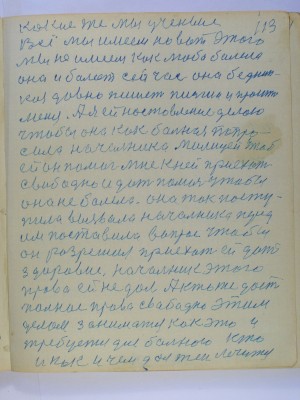 какие же мы ученые 113
Всё мы имеем но вот этого
мы не имеем как люба болела
она и болеет сейчас она бедняж-
ка давно пишет письмо и просит
меня. А я ей постовление делаю
чтобы она как больная попро-
сила начальника милицеи чтоб
ей он помог мне к ней приехат
свабодно и дат помощ чтобы
она не болела. она так посту-
пила вызвала начальника перед
им поставила вопрос чтобы
он разрешил приехат ей дат
здоровие, начальник этого
права ей не дал. А кто же даст
полное право свабадно этим
делом заниматся как это и
требуется для больного кто
и как и чем должен лечится